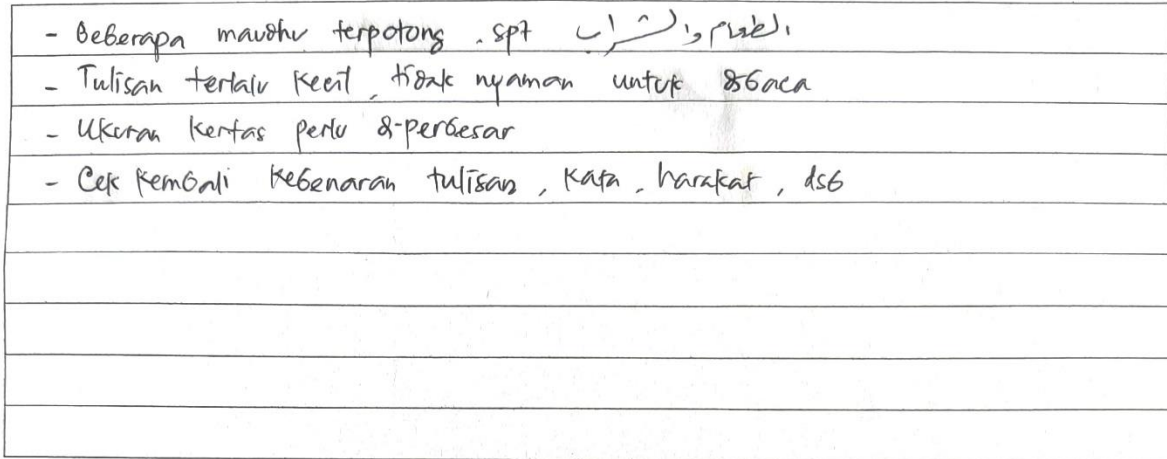 - Beberapa maudhu terpotong . spt الطعام والشراب
- Tulisan terlalu kecil, tidak nyaman untuk dibaca
- Ukuran kertas perlu di-perbesar
- Cek kembali kebenaran tulisan, kata, harakat, dsb